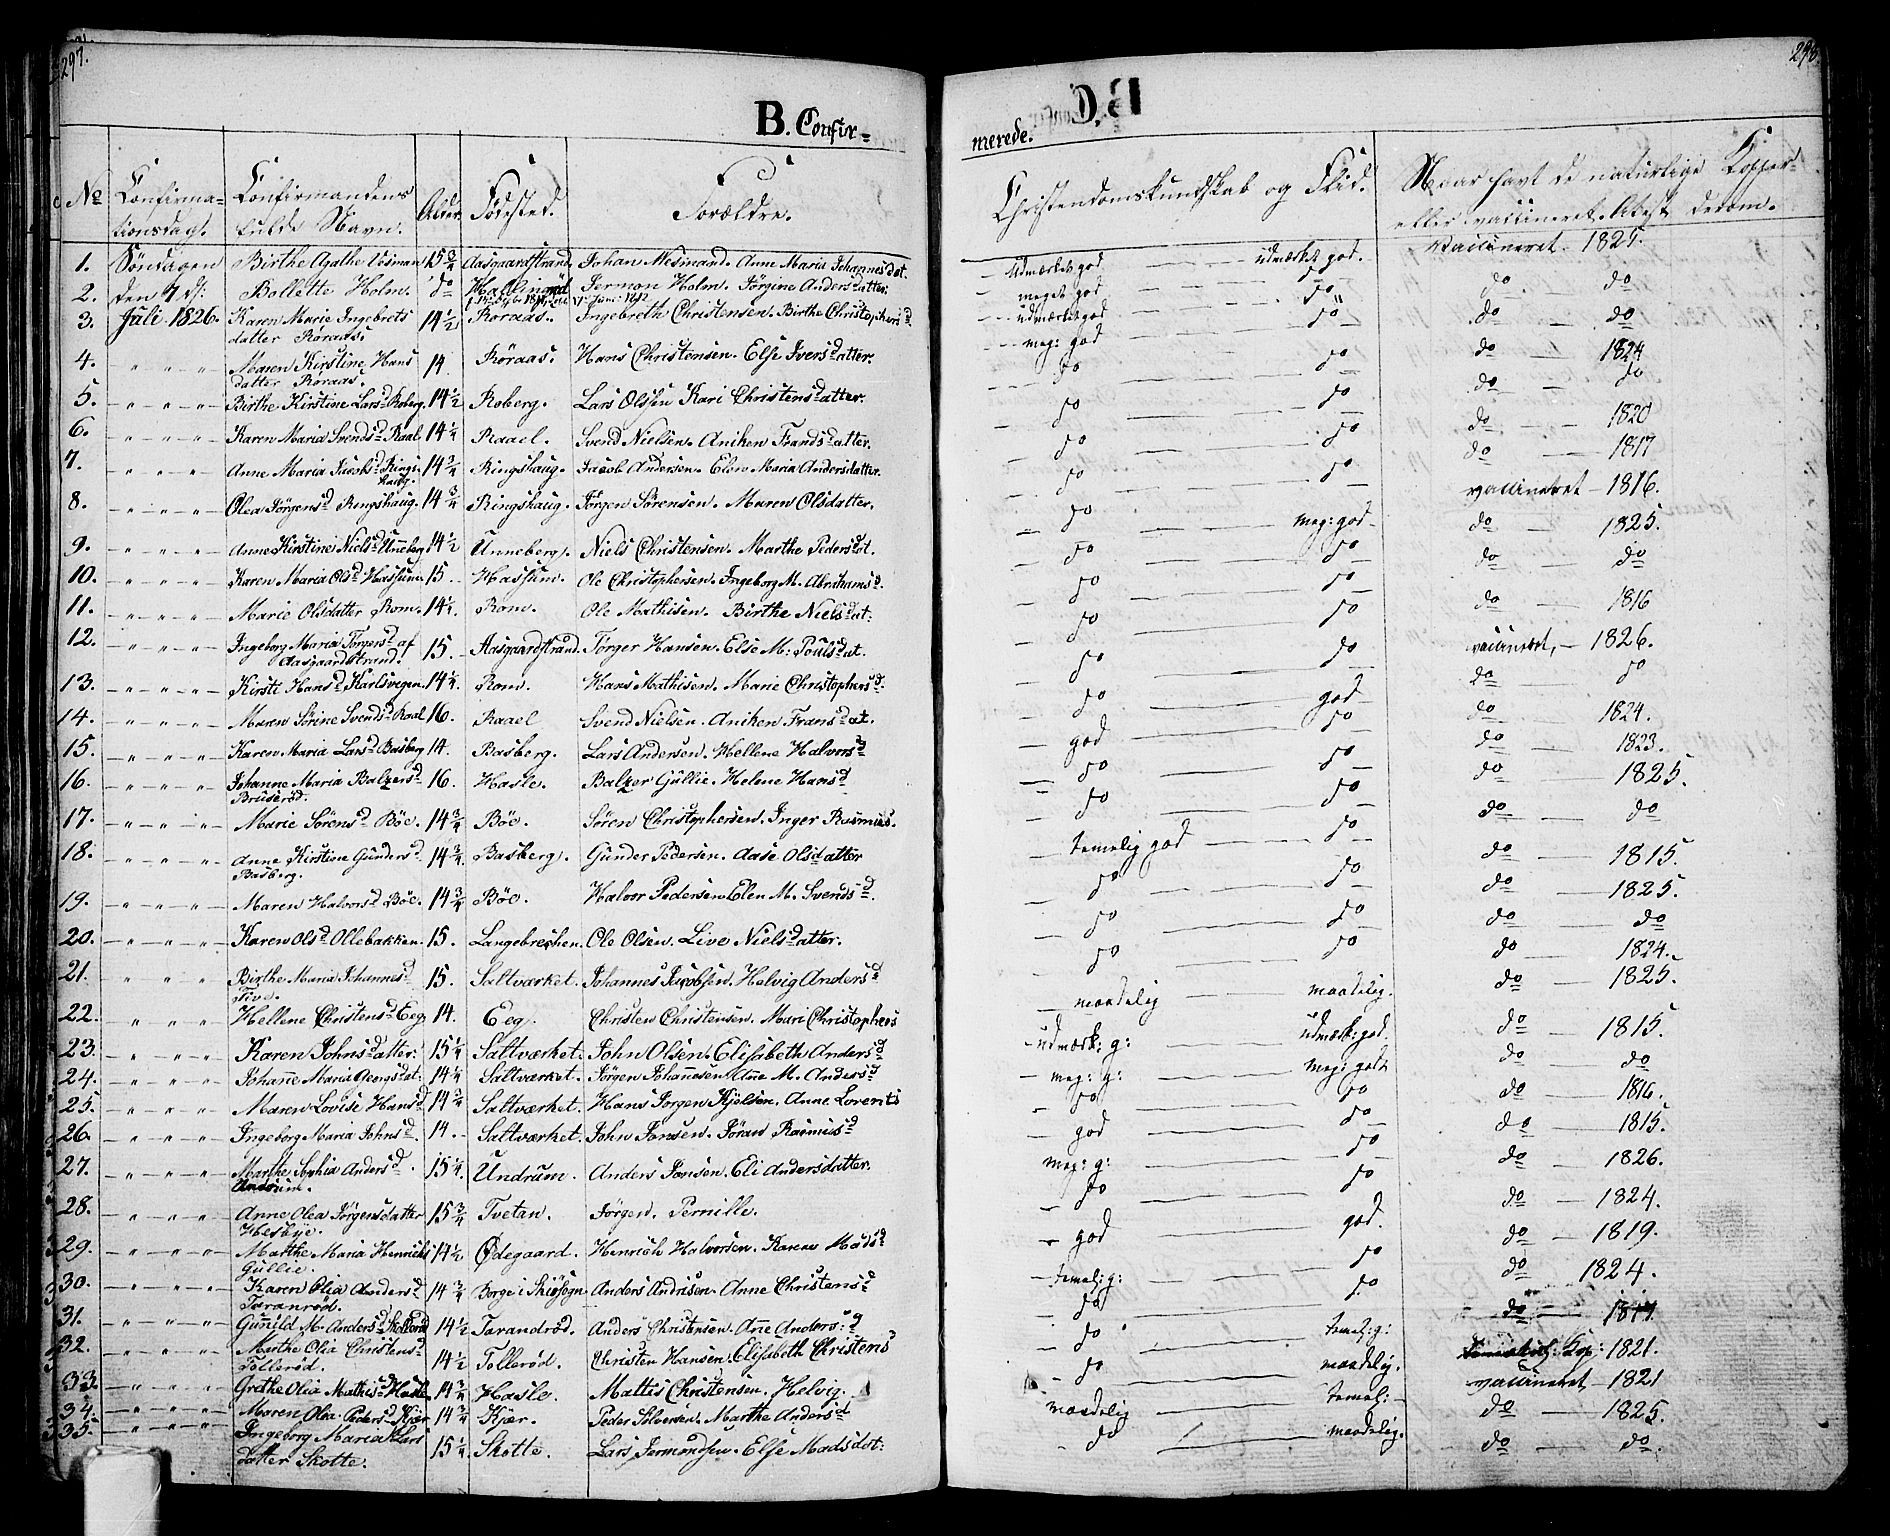 297.
B. Confir-
No Confirma-tionsdag. Confirmandens fulde Navn. Alder Fødested. Forældre.
1. Søndagen Birthe Agathe 15 3/4 Aasgaardstrand Johan Mesinand. Anne Maria Johannesdat.
2. den 7 Bollette Holm. do Jermon Holm. Jörgine Andersdatter.
3. Juli 1826. Karen Marie Ingebrets 14 1/2 Röraas. Ingebreth Christensen. Birthe Christophersd
datter Röraas.
4. " " " Maren Kirstine Hans 14 Röraas. Hans Christensen. Else Iversdatter.
datter Röraas.
5. " " " Birthe Kirstine Larsd Roberg. 14 1/2 Roberg. Lars Olsen Kari Christensdatter.
6. " " " Karen Maria Svendsd Raal 14 1/4 Raael. Svend Nielsen. Aniken Frandsdatter.
7. " " " Anne Maria Jacobsd Rings 14 3/4 Ringshaug. Jacob Andersen. Elen Maria Andersdatter.
haug.
8. " " " Olea Jörgensd Ringshaug. 14 3/4 Ringshaug. Jörgen Sörensen. Maren Olsdatter.
9. " " " Anne Kirstine Nielsd Unneberg 14 1/2 Unneberg. Niels Christensen. Marthe Pedersdt.
10. " " " Karen Maria Olsd Hassum. 15. Hassum. Ole Christophersen. Ingeborg M. Abrahamsd.
11. " " " Marie Olsdatter Rom. 14 1/4. Rom. Ole Mathisen. Birthe Nielsdat:
12. " " " Ingeborg Maria Törgersd af 15. Aasgaardstrand. Törger Hansen. Else M: Poulsdat.
Aasgaardstrand.
13. " " " Kirsti Hansd Karlsvegen. 14 1/4. Rom. Hans Mathisen. Marie Christophersd.
14. " " " Maren Sörine Svendsd Raal 16. Raael Svend Nielsen. Aniken Fransdat.
15. " " " Karen Maria Larsd Basberg 14. Basberg. Lars Andersen. Hellene Halvorsd
16. " " " Johanne Maria Balzersd 16. Hasle. Balzer Gullie. Helene Hansd
Bruseröd.
17. " " " Marie Sörensd Böe. 14 3/4 Böe. Sören Christophersen. Inger Rasmus.
18. " " " Anne Kirstine Gundersd 14 3/4. Basberg. Gunder Pedersen. Aase Olsdatter
Basberg.
19. " " " Maren Halvorsd Böe. 14 3/4 Böe. Halvor Pedersen Elen M. Svendsd.
20. " " " Karen Olsd Ollebakken. 15. Langebrechen. Ole Olsen. Live Nielsdatter.
21. " " " Birthe Maria Johannesd 15. Saltværket. Johannes Jacobsen. Helvig Andersd
Five.
22. " " " Hellene Christensd Eeg 14. Eeg. Christen Christensen. Mari Christophers
23. " " " Karen Johnsdatter: 15 1/4 Saltværket. John Olsen. Elisabeth Andersd
24. " " " Johanne Maria Georgsdt. 14 1/4 Saltværket. Jörgen Johannesen. Anne M. Andersd
25. " " " Maren Lovise Hansd 14 3/4 Saltværket. Hans Jörgen Kjelsen. Anne Lorents
26. " " " Ingeborg Maria Johnsd. 14. Saltværket. John Jonsen. Jöran Rasmusd
27. " " " Marthe Sophia Andersd. 15 1/4. Undrum. Anders Jonsen. Eli Andersdatter.
28. " " " Anne Olea Jörgensdatter 15 3/4 Tvetan. Jörgen. Pernille.
Hesbye.
29. " " " Marthe Maria Henriks 14 1/2 Ødegaard. Henrich Halvorsen. Karen Madsd
Gullie.
30. " " " Karen Olia Andersd 14 3/4 Borge i Anders Andrisen. Anne Christensd
Taranröd.
31. " " " Gunild M. Andersd 14 1/2 Tarandröd. Anders Christensen. Anne Anders:d
32. " " " Marthe Olia Christensd 14 1/2 Tolleröd. Christen Hansen. Elisabeth Christens
Tolleröd.
33. " " " Grethe Olia Mathisd Hasle 14 3/4 Hasle. Mattis Christensen. Helvig.
34. " " " Maren Olea Pedersd Kjær 14 3/4 Kjær. Peder Solversen. Marthe Andersd
35. " " " Ingeborg Maria Lars 15 1/4 Skotte. Lars Jermondsen. Else Madsdot:
datter Skotte.
298
merede.
Christendomskundskab og Flid. Naar havt de naturlige Kopper
eller vaccineret. Atest derom.
Udmærket god udmærket god. Vaccineret 1825.
meget god do do do
udmærket god do do do
meg: god do do 1824
do do do do
do do do 1820
do do do 1817
do do vaccineret 1816.
do meg: god do 1825.
do do do do
do do do 1816
do do vaccineret, 1826.
do do do do
do god do 1824.
god do do 1823.
do do do 1825.
do do do do
temelig god do do 1815.
do do do 1825.
do do do do
do do do 1824.
maadelig maadelig. do 1825.
udmærk: g: udmærk: god. do 1815.
meg: g: meg: godt do do
do do do 1816.
god do do 1815.
meg: g: do do 1826.
do do do 1824.
god god. do 1819.
temel: g: do do 1824.
do do do
do temel: g: 1821.
do maadelig. vaccineret 1821
maadelig temel: do 1825.
do maadelig. do do.